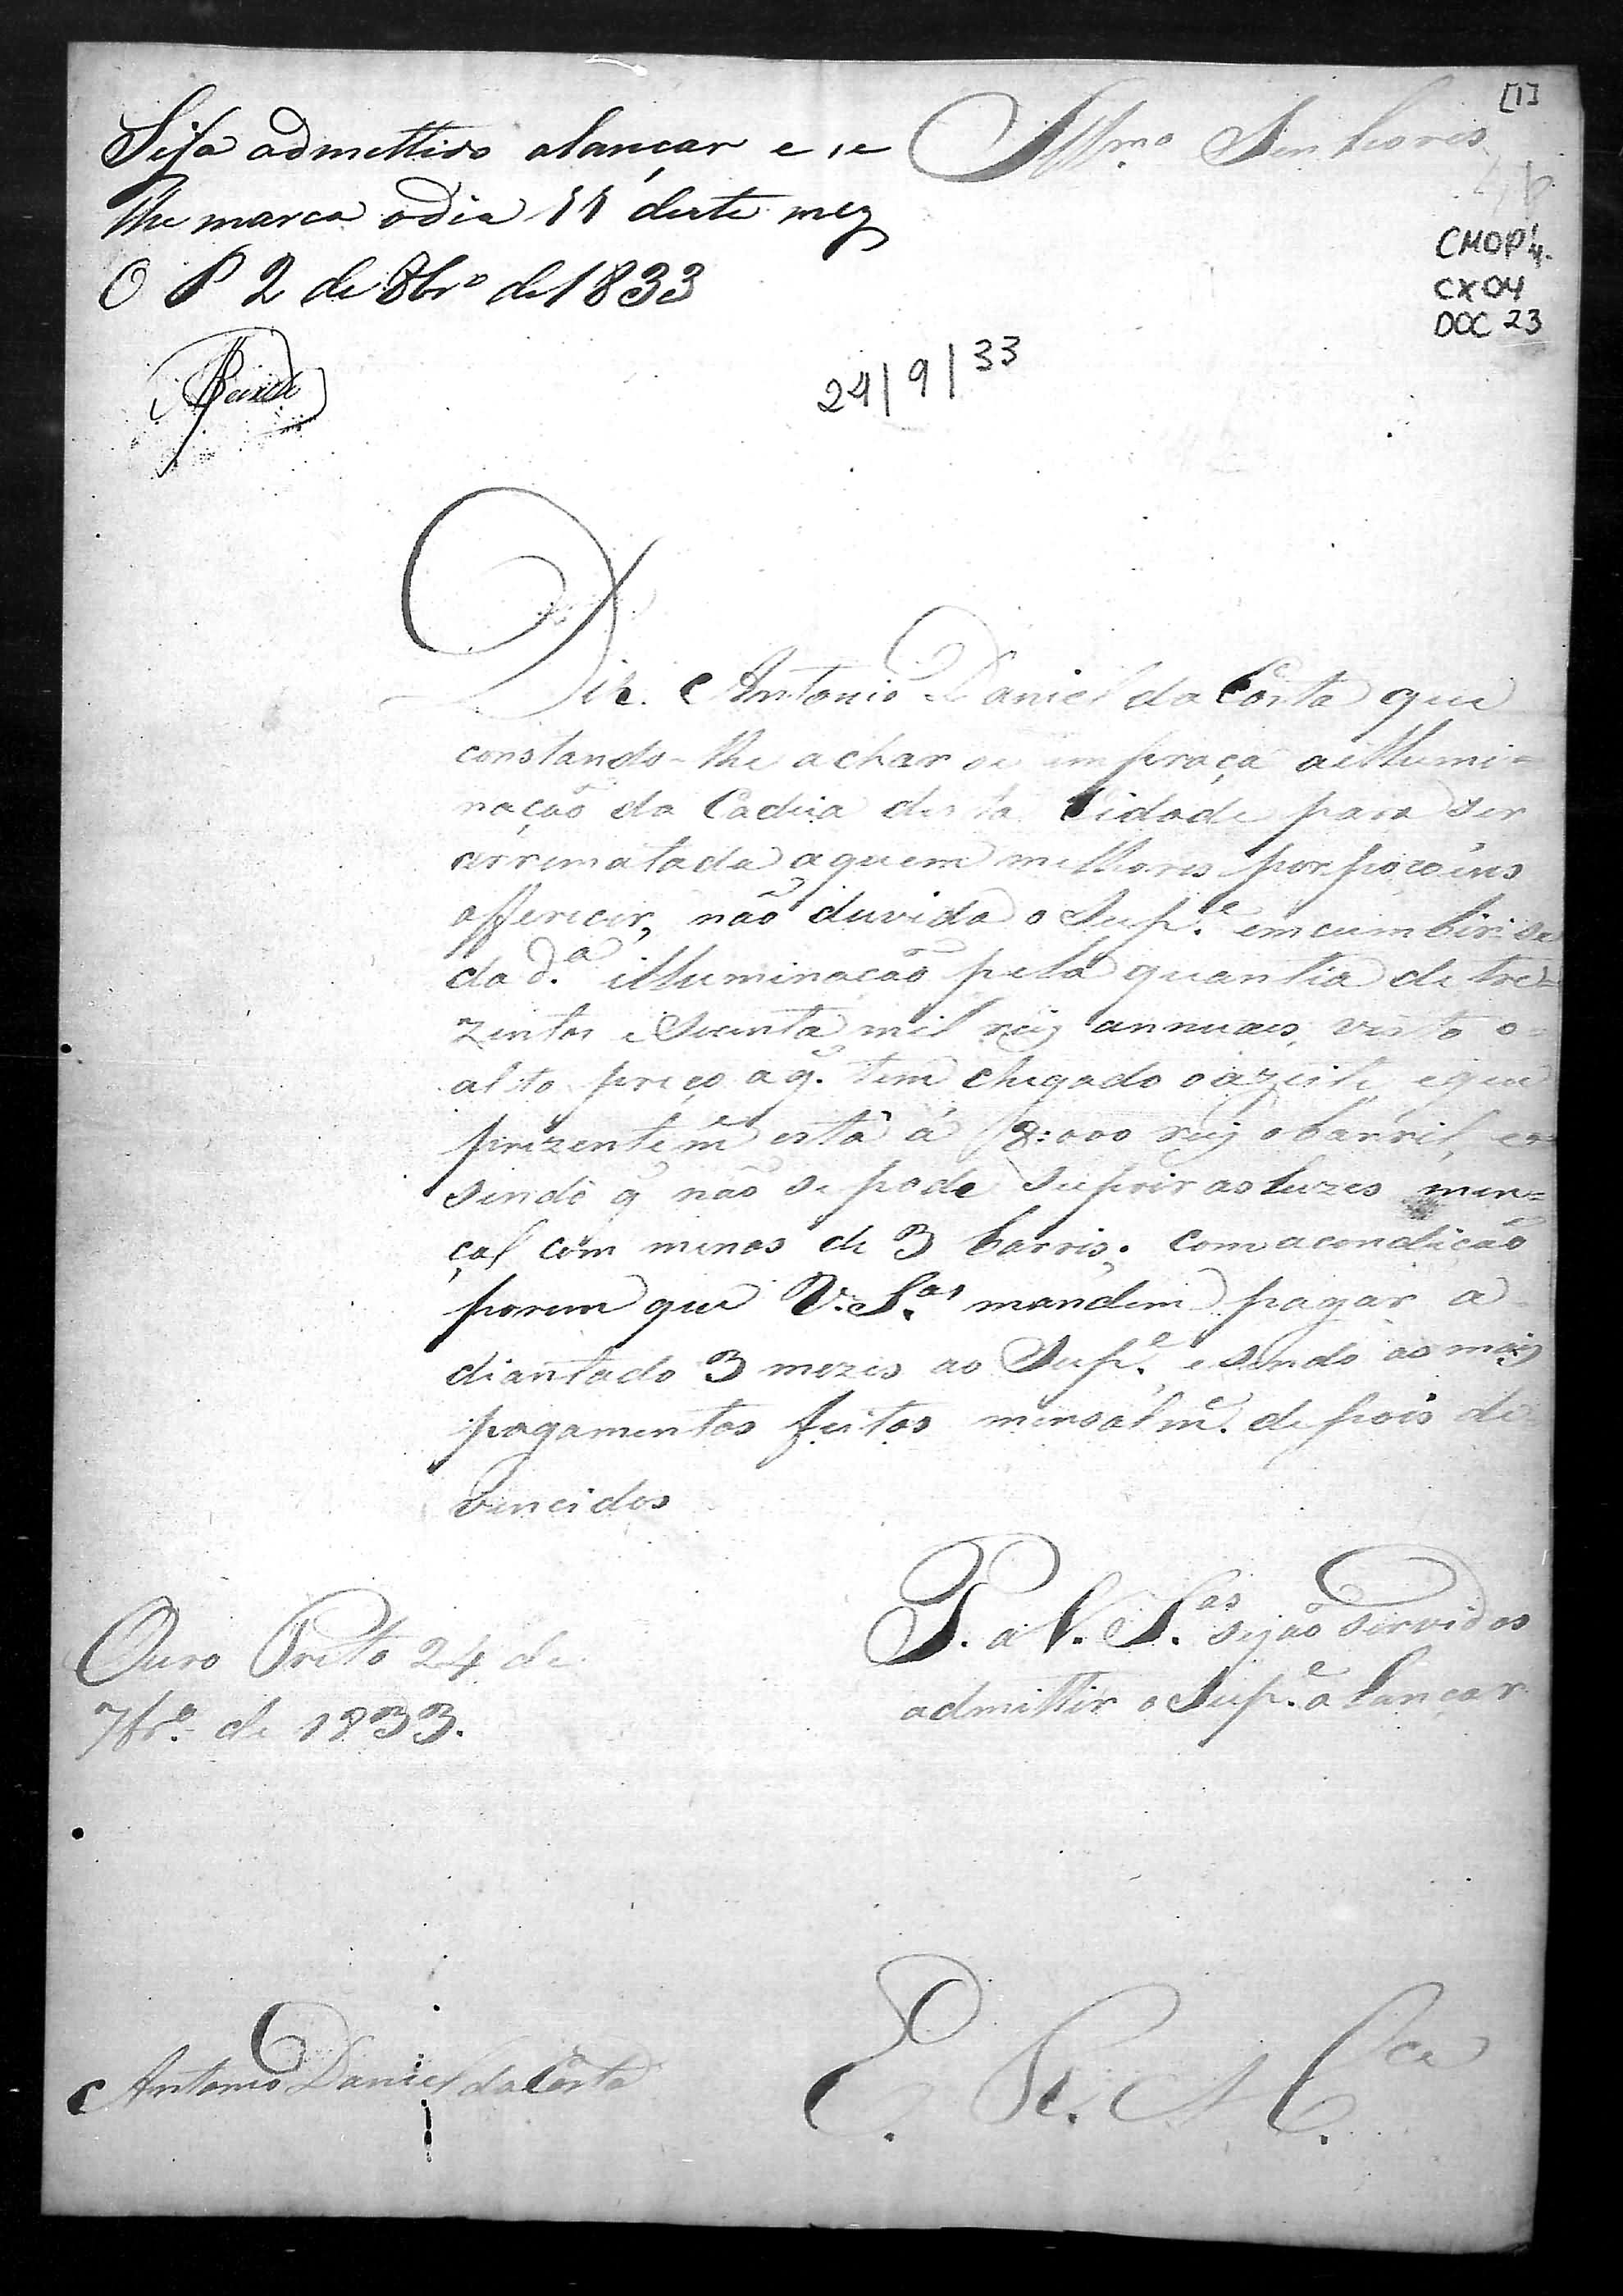 [1]
Seja admettido alançar e se
lhe marca odia 11 deste mez
O P 2 de 8br.º de 1833
Illm.º Senhores
CMOP
CX04
DOC 23
24/9/33
Diz Antonio Daniel da Costa que
constando-lhe achar se em praça aillumi=
nação da Cadeia desta Cidade para ser
arrematada aquem milhores porpoçoins
offerecer, não duvida o Sup.e emcumbir se
da d.a illuminacaõ pela quantia de tre=
zentos e secenta mil reis annuaes, visto o=
alto preço a q. tem chegado oazeite, eque
prezentem.e está á 8:000 reis obarril, e
sendo q não se pode suprir as luzes men=
çal com menos de 3 barris; com acondiçaõ
porem que V. S.as mandem pagar a
diantado 3 mezes ao Sup.e e sendo os mais
pagamentos feitos mensalm.e depois de
vencidos
P. a V. S.as sejão servidos
admittir o Sup.e a lançar
Ouro Preto 24 de
7br.º de 1833.
E. R. M.ce
Antonio Daniel da Costa